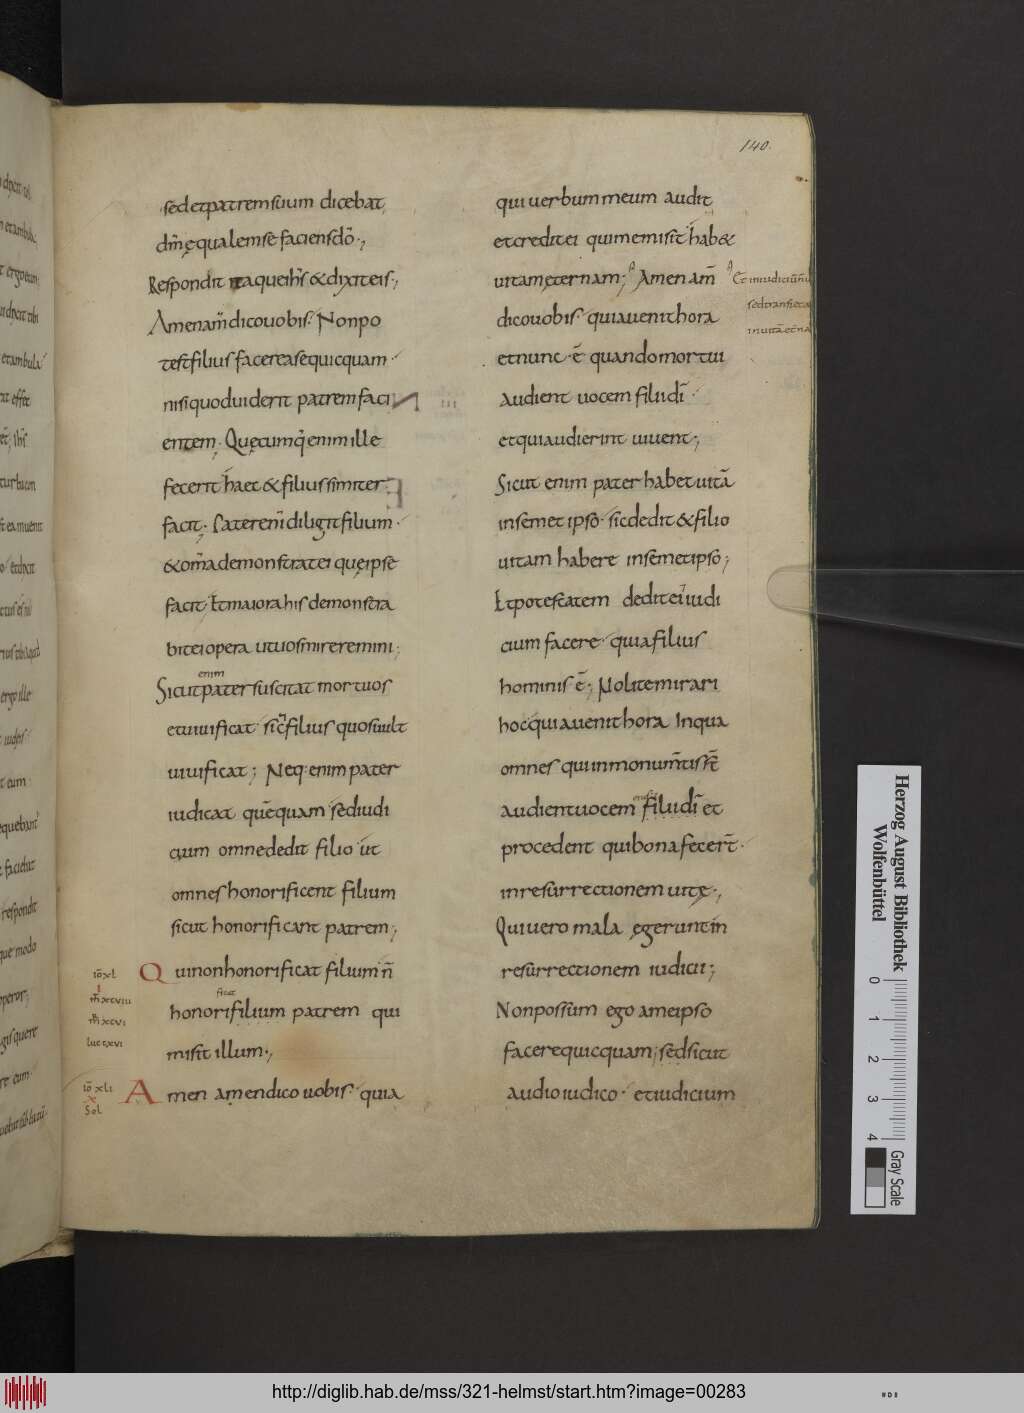 140.
sed et patrem suum dicebat
dm̄ ęqualem se faciens dō;
Respondit itaque ih̄s & dixit eis;
Amen am̄ dico uobis. Non po
test filius facere a se quicquam
nisi quod uiderit patrem faci
entem. Quęcumq; enim ille
fecerit haec & filius similiter
facit. Pater enī diligit filium.
& om̄a demonstrat ei quę ipse
facit. Et maiora his demonstra
bit ei opera ut uos miremini;
enim
Sicut pater suscitat mortuos
et uiuificat sic̄ filius quos uult
uiuificat; Neq; enim pater
iudicat quēquam sed iudi
cium omne dedit filio ut
omnes honorificent filium
sicut honorificant patrem;
Qui non honorificat filium n̄
ficat
honorifilium patrem qui
misit illum;
Amen amen dico uobis quia
iō xl
i
m̄ xcviii
m̄ xcvi
luc cxvi
iō xli
x
Sol
qui uerbum meum audit
et credit ei qui me misit hab&
uitam ęternam; Amen am̄
dico uobis quia uenit hora
et nunc ē quando mortui
audient uocem filii dī
et qui audierint uiuent;
Sicut enim pater habet uitā
in semet ipso sic dedit & filio
uitam habere in semetipso;
Et potestatem dedit ei iudi
cium facere quia filius
hominis ē; Nolite mirari
hoc quia uenit hora In qua
omnes qui in monum̄tis st̄
audient uocem filii dī et
procedent qui bona fecer̄t
in resurrectionem uitę;
Qui uero mala egerunt in
resurrectionem iudicii;
Non possum ego a me ipso
facere quicquam; sed sicut
audio iudico et iudicium
Et in iudiciū n̄ u
sed transiet a
in uitā etn̄a
Herzog August Bibliothek
Wolfenbüttel
0 1 2 3 4
Gray Scale
http://diglib.hab.de/mss/321-helmst/start.htm?image=00283